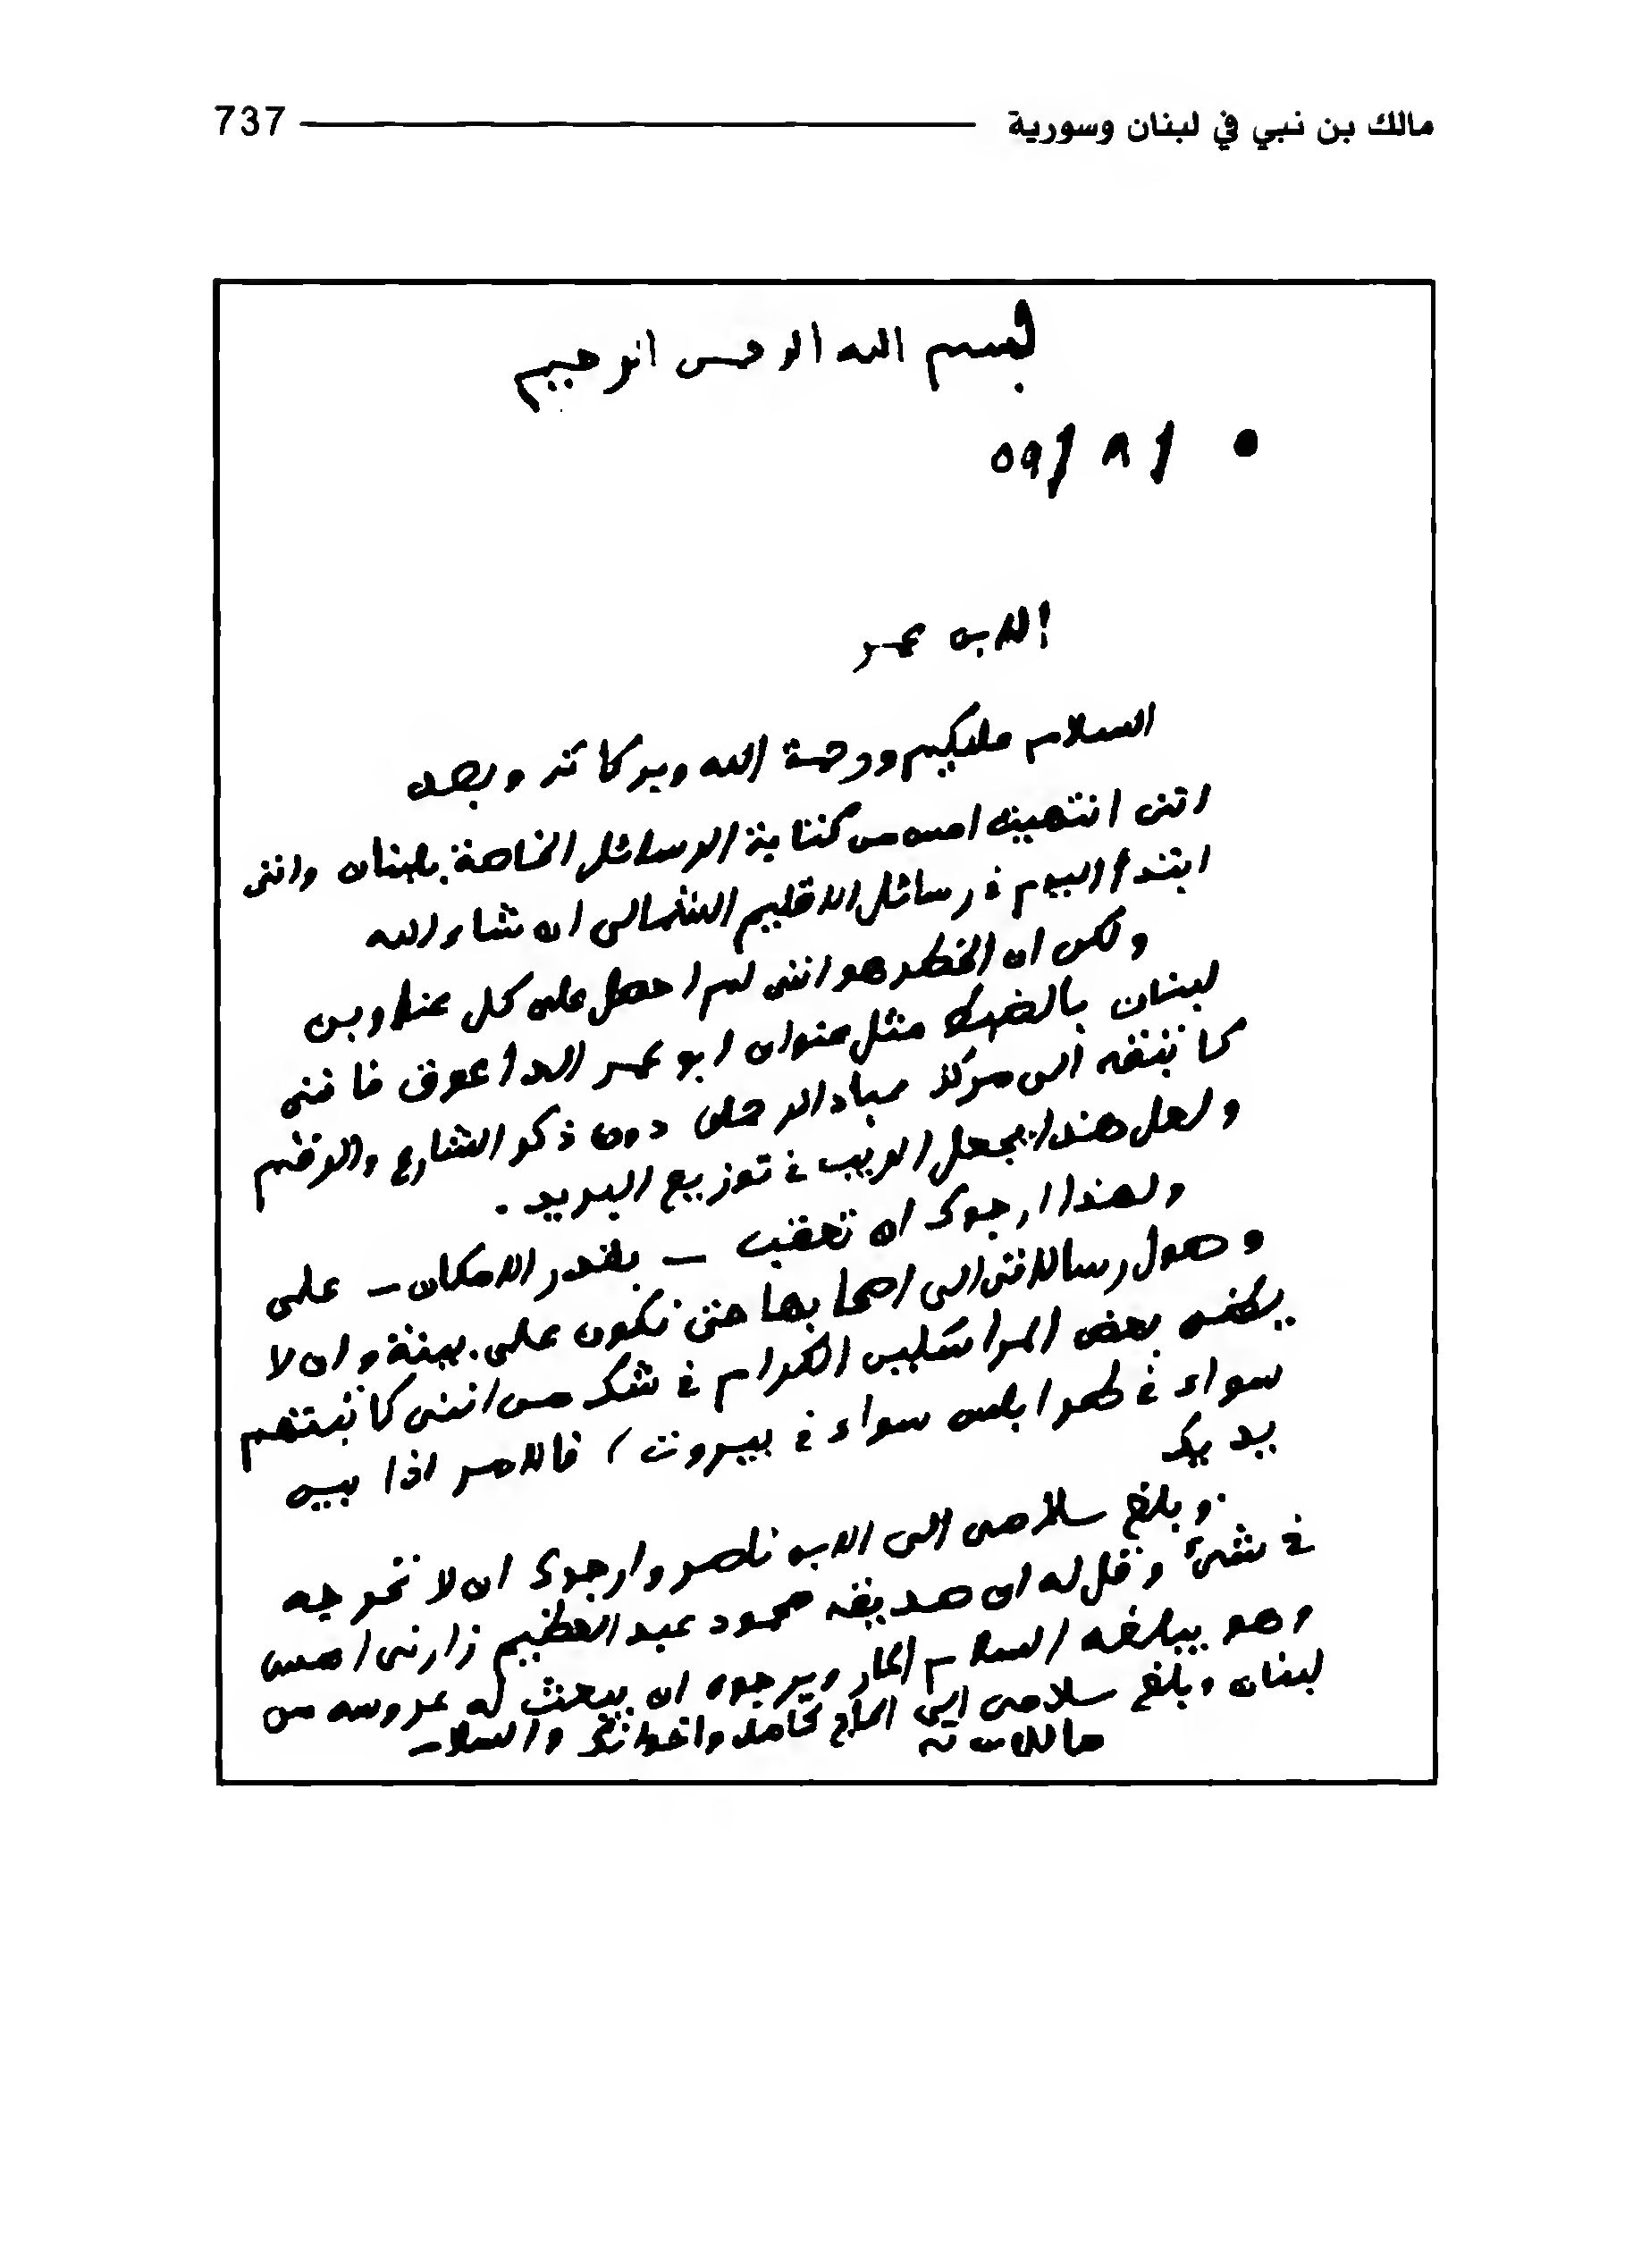 مالك بن نبي في لبنان وسورية 737
بسم الله الرحمن الرحيم
٥٩/٨/
الابن عمر
السلام عليكم ورحمة الله وبركاته وبعد
انني انتهيت امس من كتابة الرسائل الخاصة بلبنان وانني
ابتدأ اليوم في رسائل الاقليم الشمالي ان شاء الله
ولكن ان الخطر هو انني لم احصل على كل عناوين
لبنان بالضبط مثل عنوان ابو عمر الداعوق فانني
كاتبته الى مركز عباد الرحمان دون ذكر الشارع والرقم
ولعل هذا يجعل الريب في توزيع البريد.
ولهذا ارجوك ان تعقب - بقدر الامكان - على
وصول رسالاتي الى اصحابها حتى نكون على بينة وان لا
بعض المراسلين الكرام في شك من انني كاتبتهم
سواء في طرابلس سواء في بيروت، فالامر اذا بين
يديك
وبلغ سلامي الى الابن ناصر وارجوك ان لا تحرجه
في شيء وقل له ان صديقه محمود عبد العظيم زارني امس
وهو يبلغه السلام الحار ويرجوه ان يبعث له عروسه من
لبنان وبلغ سلامي الى الحاج كامل واخوانك والسلام
مالك بن نبي